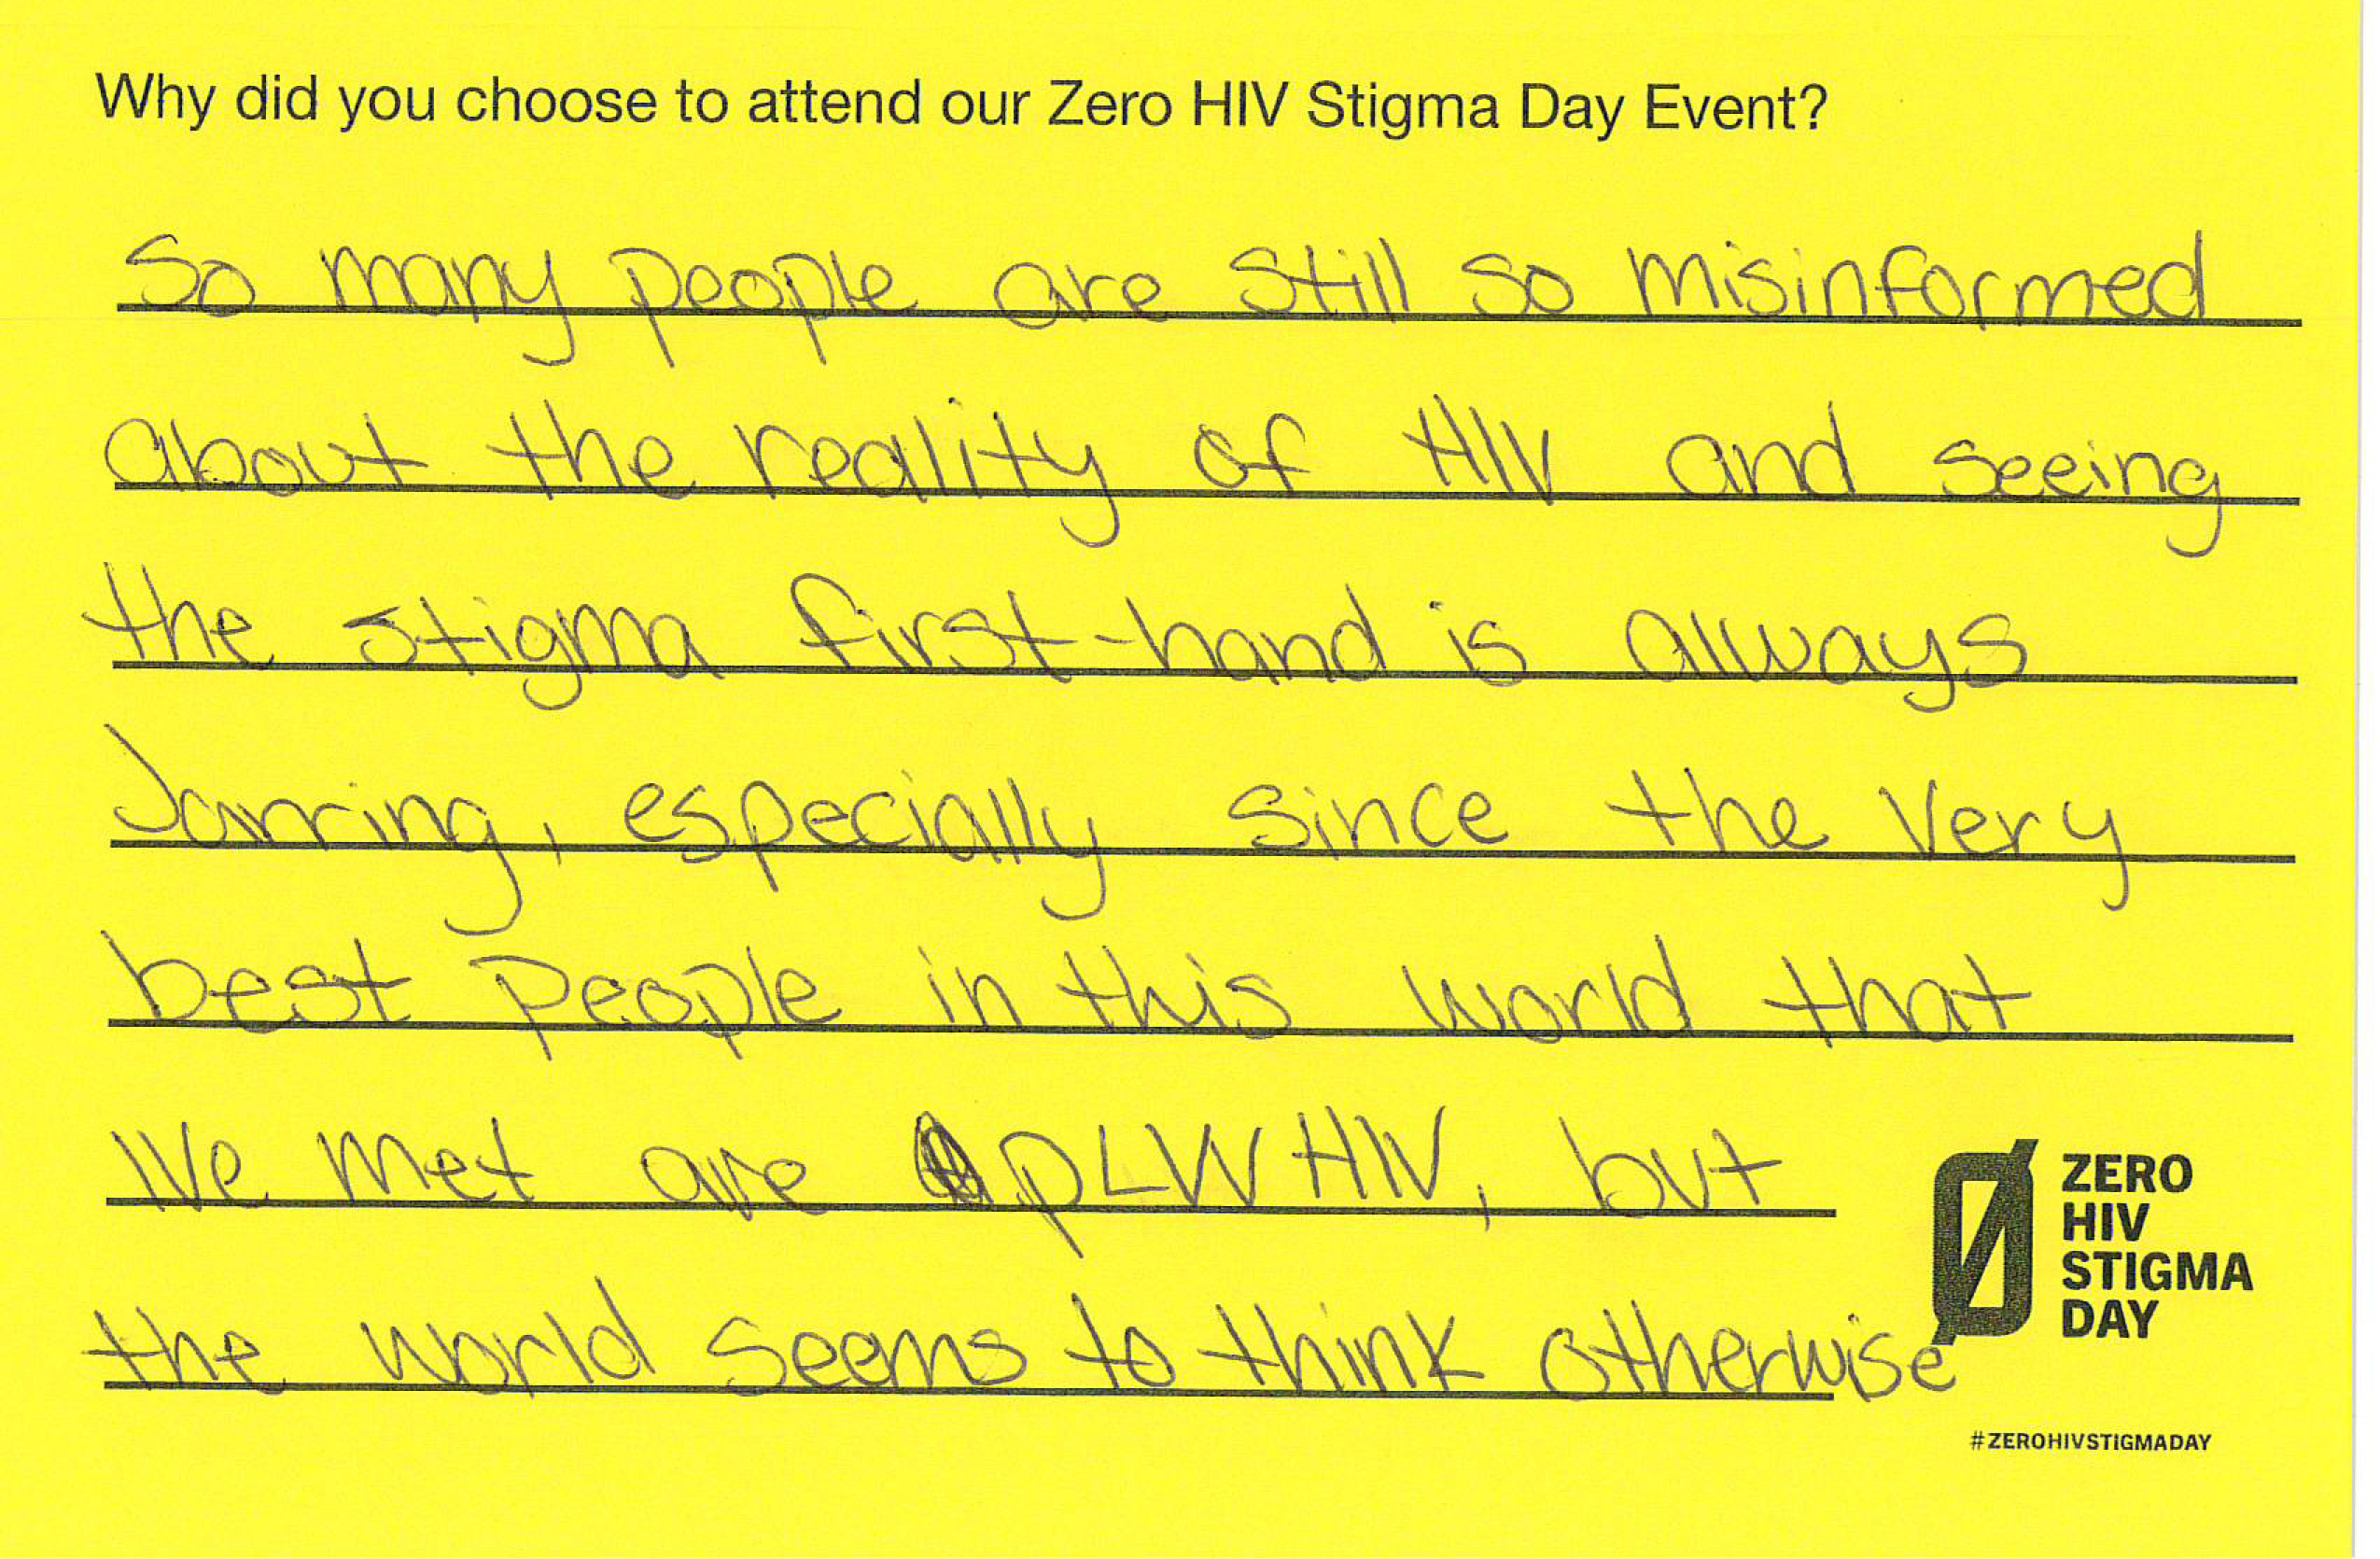 Why did you choose to attend our Zero HIV Stigma Day Event?
So many people are still so misinformed
about the reality of HIV and seeing
the stigma first-hand is always
Jarring, especially since the very
best people in this world that
IVe met are PLWHIV, but
the world seems to think otherwise
ZERO
HIV
STIGMA
DAY
#ZEROHIVSTIGMADAY